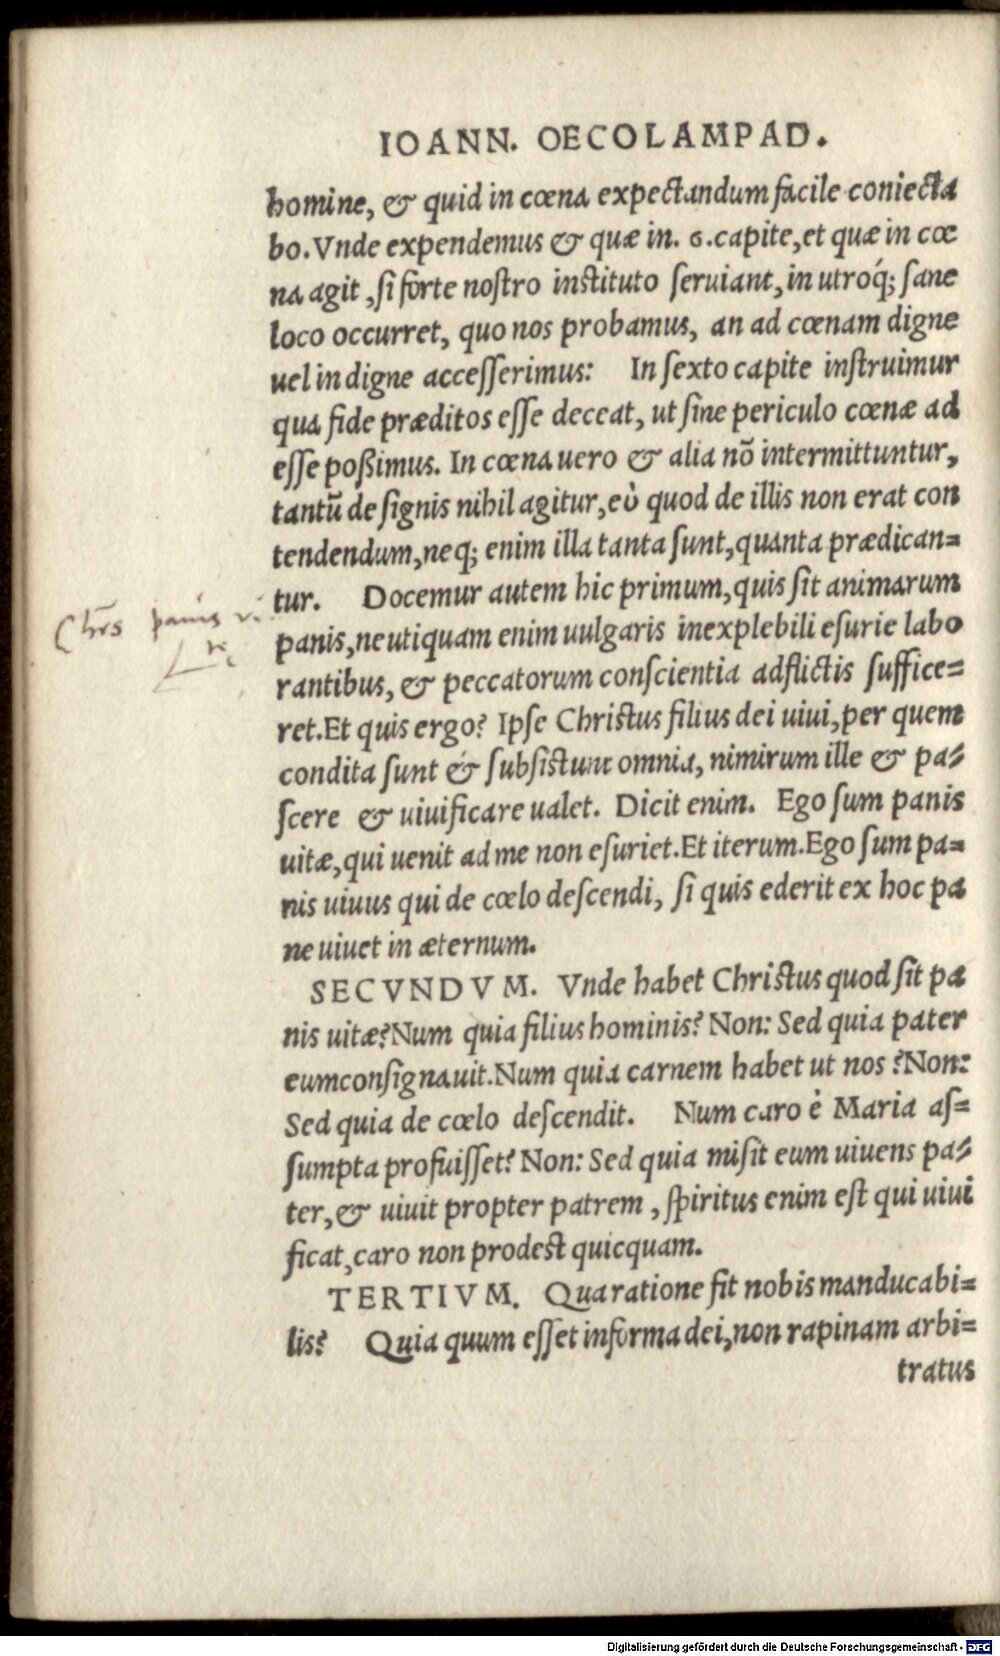 IOANN. OECOLAMPAD.
homine, & quid in cœna expectandum facile coniecta
bo. Vnde expendemus & quæ in. 6. capite, et quæ in cœ
na agit, si forte nostro instituto seruiant, in utroq́; sane
loco occurret, quo nos probamus, an ad cœnam digne
uel indigne accesserimus: In sexto capite instruimur
qua fide præditos esse deceat, ut sine periculo cœnæ ad
esse poßimus. In cœna uero & alia nō intermittuntur,
tantū de signis nihil agitur, eò quod de illis non erat con
tendendum, neq; enim illa tanta sunt, quanta prædican=
tur. Docemur autem hic primum, quis sit animarum
Chrs panis
panis, ne utiquam enim uulgaris inexplebili esurie labo
rantibus, & peccatorum conscientia adflictis suffice=
ret. Et quis ergo? Ipse Christus filius dei uiui, per quem
condita sunt & subsistunt omnia, nimirum ille & pa=
scere & uiuificare ualet. Dicit enim. Ego sum panis
uitæ, qui uenit ad me non esuriet. Et iterum. Ego sum pa=
nis uiuus qui de cœlo descendi, si quis ederit ex hoc pa
ne uiuet in æternum.
SECVNDVM. Vnde habet Christus quod sit pa
nis uitæ? Num quia filius hominis? Non: Sed quia pater
eum consignauit. Num quia carnem habet ut nos? Non:
Sed quia de cœlo descendit. Num caro è Maria as=
sumpta profuisset? Non: Sed quia misit eum uiuens pa=
ter, & uiuit propter patrem, spiritus enim est qui uiui
ficat, caro non prodest quicquam.
TERTIVM. Qua ratione fit nobis manducabi=
lis? Quia quum esset in forma dei, non rapinam arbi=
tratus
Digitalisierung gefördert durch die Deutsche Forschungsgemeinschaft - DFG